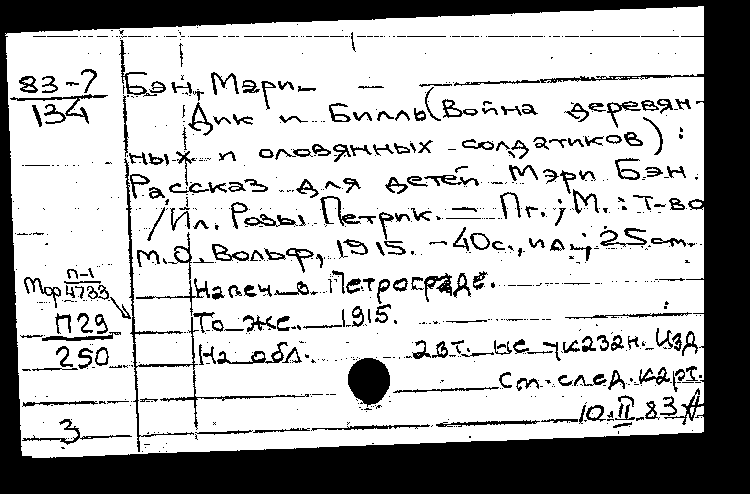 83-7 Бэн, Мэри —
134 Дик и Билль (Война деревян-
ных и оловянных солдатиков) :
Рассказ для детей Мэри Бэн.
/ Ил. Розы Петрик. — Пг.; М.: Т-во
М.О. Вольф, 1915. - 40с., ил.; 25см.
п-1
Мор 4733 Напеч. в Петрограде.
П29 То же. 1915. :
250 На обл. авт. не указан. Изд
См. след. карт.
3 10.II 83